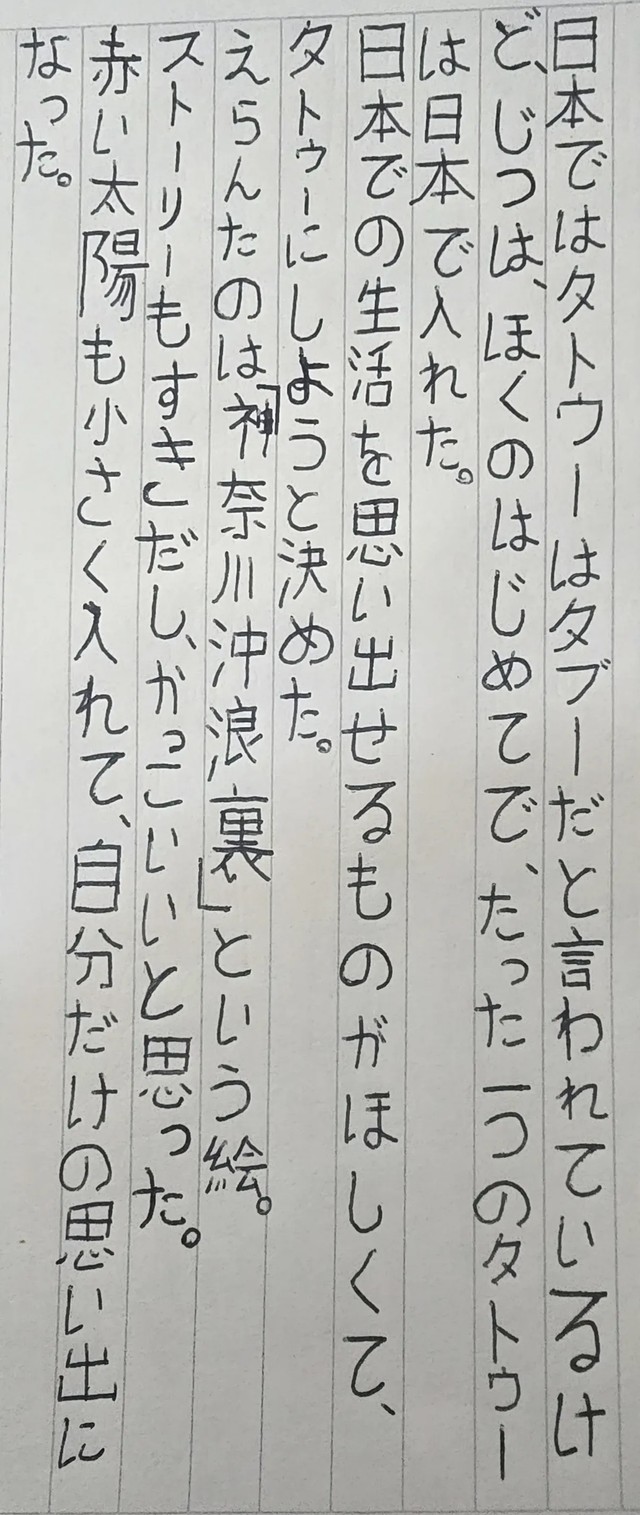 日本ではタトゥーはタブーだと言われているけ
ど、じつは、ほくのはじめてで、たった一つのタトゥー
は日本で入れた。
日本での生活を思い出せるものがほしくて、
タトゥーにしようと決めた。
えらんたのは「神奈川沖浪裏」という絵。
ストーリーもすきだし、かっこいいと思った。
赤い太陽も小さく入れて、自分だけの思い出に
なった。